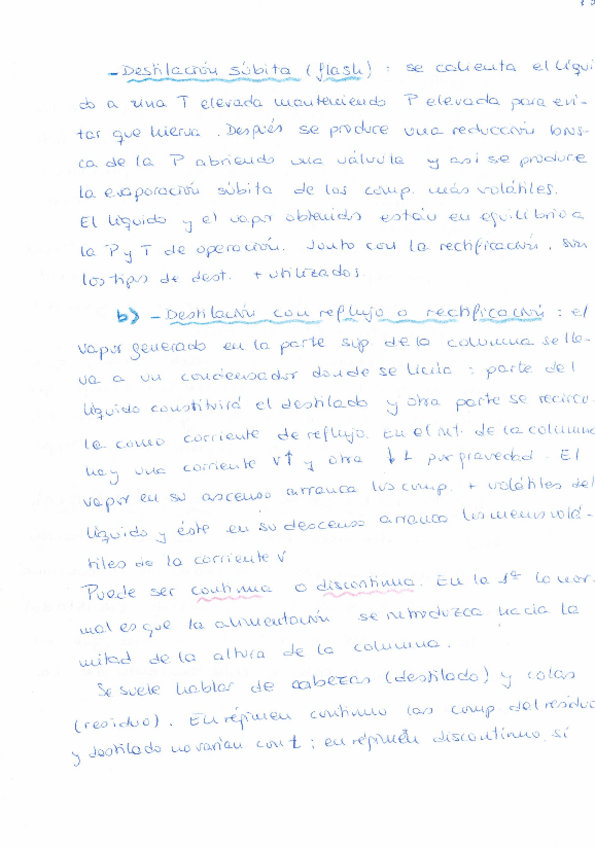 - Destilación súbita (flash) : se calienta el líqui
do a una T elevada manteniendo P elevada para evi-
tar que hierva. Después se produce una reducción brus-
ca de la P abriendo una válvula y así se produce
la evaporación súbita de los comp. más volátiles.
El líquido y el vapor obtenidos están en equilibrio a
la P y T de operación. Junto con la rectificación, son
los tipos de dest. + utilizados.
b) - Destilación con reflujo o rectificación : el
vapor generado en la parte sup. de la columna se lle-
va a un condensador donde se licúa : parte del
líquido constituirá el destilado y otra parte se recircu-
la como corriente de reflujo. En el int. de la columna
hay una corriente V↑ y otra ↓ L por gravedad. El
vapor en su ascenso arranca los comp. + volátiles del
líquido y éste en su descenso arranca los menos volá-
tiles de la corriente V
Puede ser continua o discontinua. En la 1ª lo nor-
mal es que la alimentación se introduzca hacia la
mitad de la altura de la columna.
Se suele hablar de cabezas (destilado) y colas
(residuo). En régimen continuo las comp del residuo
y destilado no varían con t ; en régimen discontinuo, sí